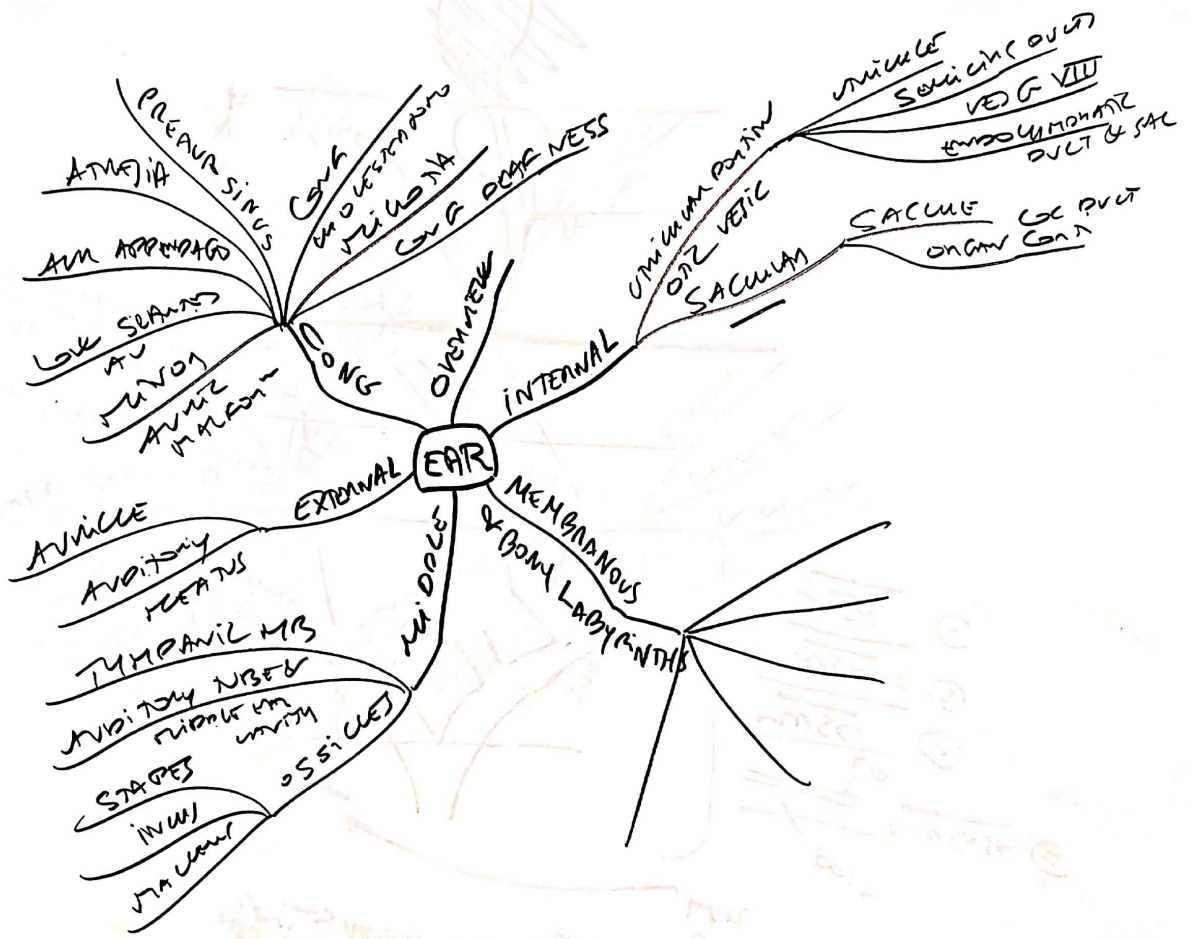 EAR
OVERVIEW
INTERNAL
UTRICULAR PORTION
OTIC VESIC
UTRICLE
SEMICIRC DUCTS
VEST G VIII
ENDOLYMPHATIC
DUCT & SAC
SACCULAR
SACCULE
COC DUCT
ORGAN CORTI
MEMBRANOUS
& BONY LABYRINTHS
MIDDLE
TYMPANIC MB
AUDITORY TUBE &
MIDDLE EAR
CAVITY
OSSICLES
STAPES
INCUS
MALLEUS
EXTERNAL
AURICLE
AUDITORY
MEATUS
CONG
PREAUR SINUS
ATRESIA
AUR APPENDAGE
LOW SLANTED
AU
MINOR
AURIC
MALFORM
CONG
CHOLESTEATOMA
MICROTIA
CONG DEAFNESS